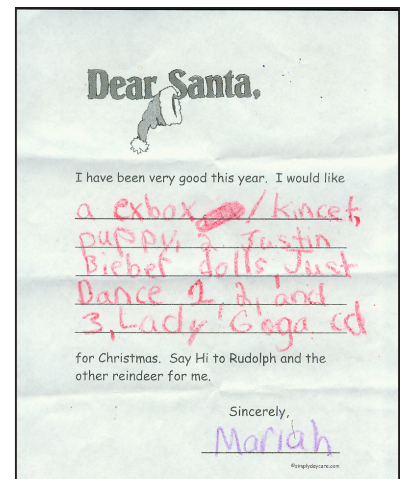 Dear Santa,
I have been very good this year. I would like
a exbox / kincet,
puppy, 2 Justin
Bieber dolls, Just
Dance 1, 2, and
3, Lady Gaga cd
for Christmas. Say Hi to Rudolph and the
other reindeer for me.
Sincerely,
Mariah
©simplydaycare.com